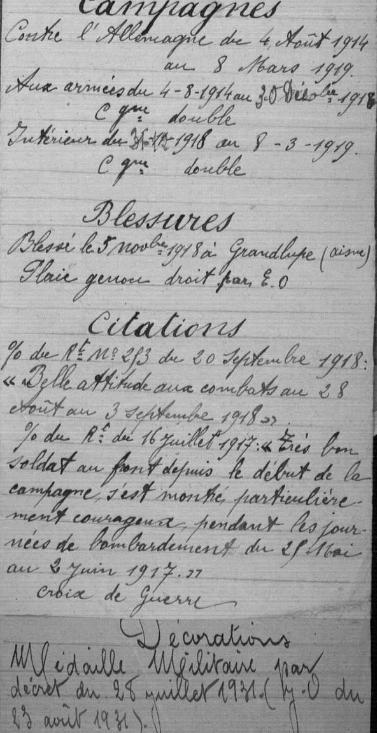 Campagnes
Contre l'Allemagne du 4 Août 1914
au 8 Mars 1919.
Aux armées du 4-8-1914 au 30 Décbre 1918
C gne double
Intérieur du 31-12-1918 au 8-3-1919.
C gne double
Blessures
Blessé le 5 novbre 1918 à Grandlupe (aisne)
Plaie genou droit par E.O
Citations
% du Rt No 253 du 20 Septembre 1918:
« Belle attitude aux combats au 28
Août au 3 septembre 1918 »
% du Rt du 16 juillet 1917: « Très bon
soldat au front depuis le début de la
campagne, s'est montré particulière-
ment courageux, pendant les jour-
nées de bombardement du 25 Mai
au 2 Juin 1917. »
croix de Guerre
Décorations
Médaille Militaire par
décret du 28 juillet 1931. (J.O du
23 août 1931).